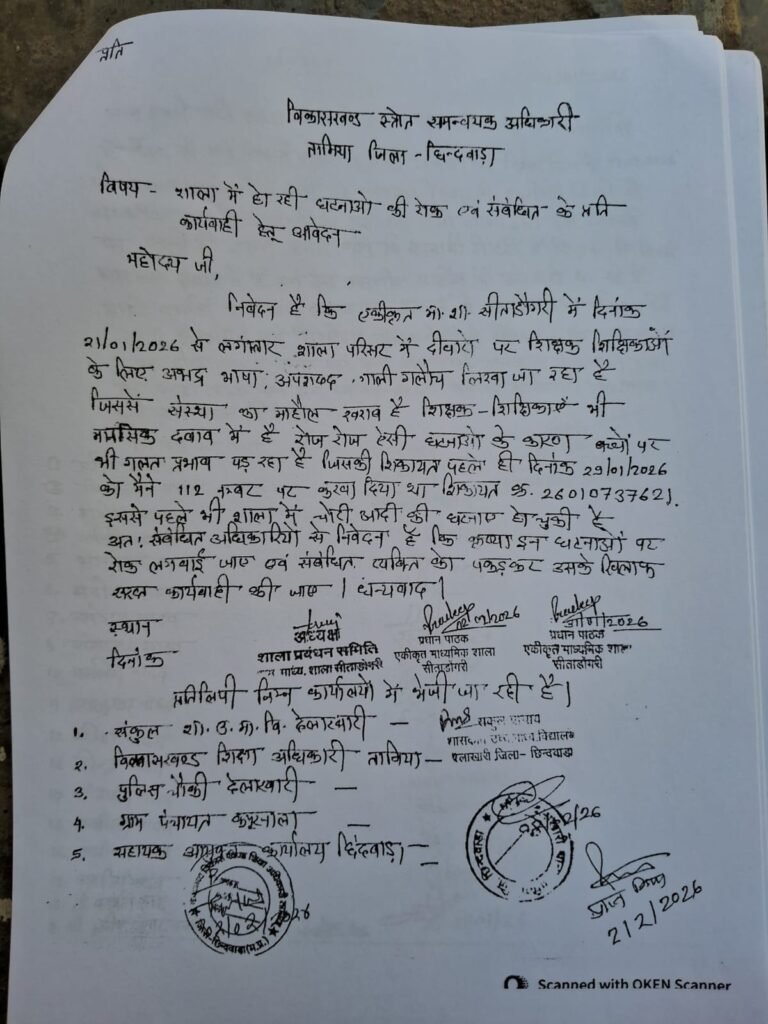 प्रति
विकासखण्ड स्त्रोत समन्वयक अधिकारी
तामिया जिला - छिन्दवाड़ा
विषय - शाला में हो रही घटनाओं की रोक एवं संबंधित के प्रति
कार्यवाही हेतू आवेदन
महोदय जी,
निवेदन है कि एकीकृत मा. शा. सीताडोंगरी में दिनांक
21/01/2026 से लगातार शाला परिसर में दीवारो पर शिक्षक शिक्षिकाओं
के लिए अभद्र भाषा, अपशब्द, गाली गलौच लिखा जा रहा है
जिससें संस्था का माहौल खराब है शिक्षक-शिक्षिकाएँ भी
मानसिक दवाव में है रोज रोज ऐसी घटनाओ के कारण बच्चो पर
भी गलत प्रभाव पड़ रहा है जिसकी शिकायत पहले ही दिनांक 29/01/2026
को मैने 112 नम्बर पर करवा दिया था शिकायत क्र. 2601073762).
इससे पहले भी शाला में चोरी आदी की घटनाए हो चुकी है
अतः संबंधित अधिकारियों से निवेदन है कि कृप्या इन घटनाओं पर
रोक लगवाई जाए एवं संबंधित व्यक्ति को पकड़कर उसके खिलाफ
सख्त कार्यवाही की जाए | धन्यवाद |
स्थान
दिनांक
अध्यक्ष
शाला प्रबंधन समिति
माध्य. शाला सीताडोगरी
02/02/2026
प्रधान पाठक
एकीकृत माध्यमिक शाला
सीताडोगरी
/01/2026
प्रधान पाठक
एकीकृत माध्यमिक शाला
सीताडोगरी
प्रतिलिपी निम्न कार्यालयो में भेजी जा रही है|
1. संकुल शा. उ. मा. वि. देलाखारी —
संकुल प्राचार्य
विद्यालय
जिला- छिन्दवाडा
2. विकासखण्ड शिक्षा अधिकारी तामिया —
3. पुलिस चौकी देलाखारी —
4. ग्राम पंचायत
5. सहायक आयुक्त कार्यालय छिंदवाड़ा —
2/26
2/2/2026
Scanned with OKEN Scanner